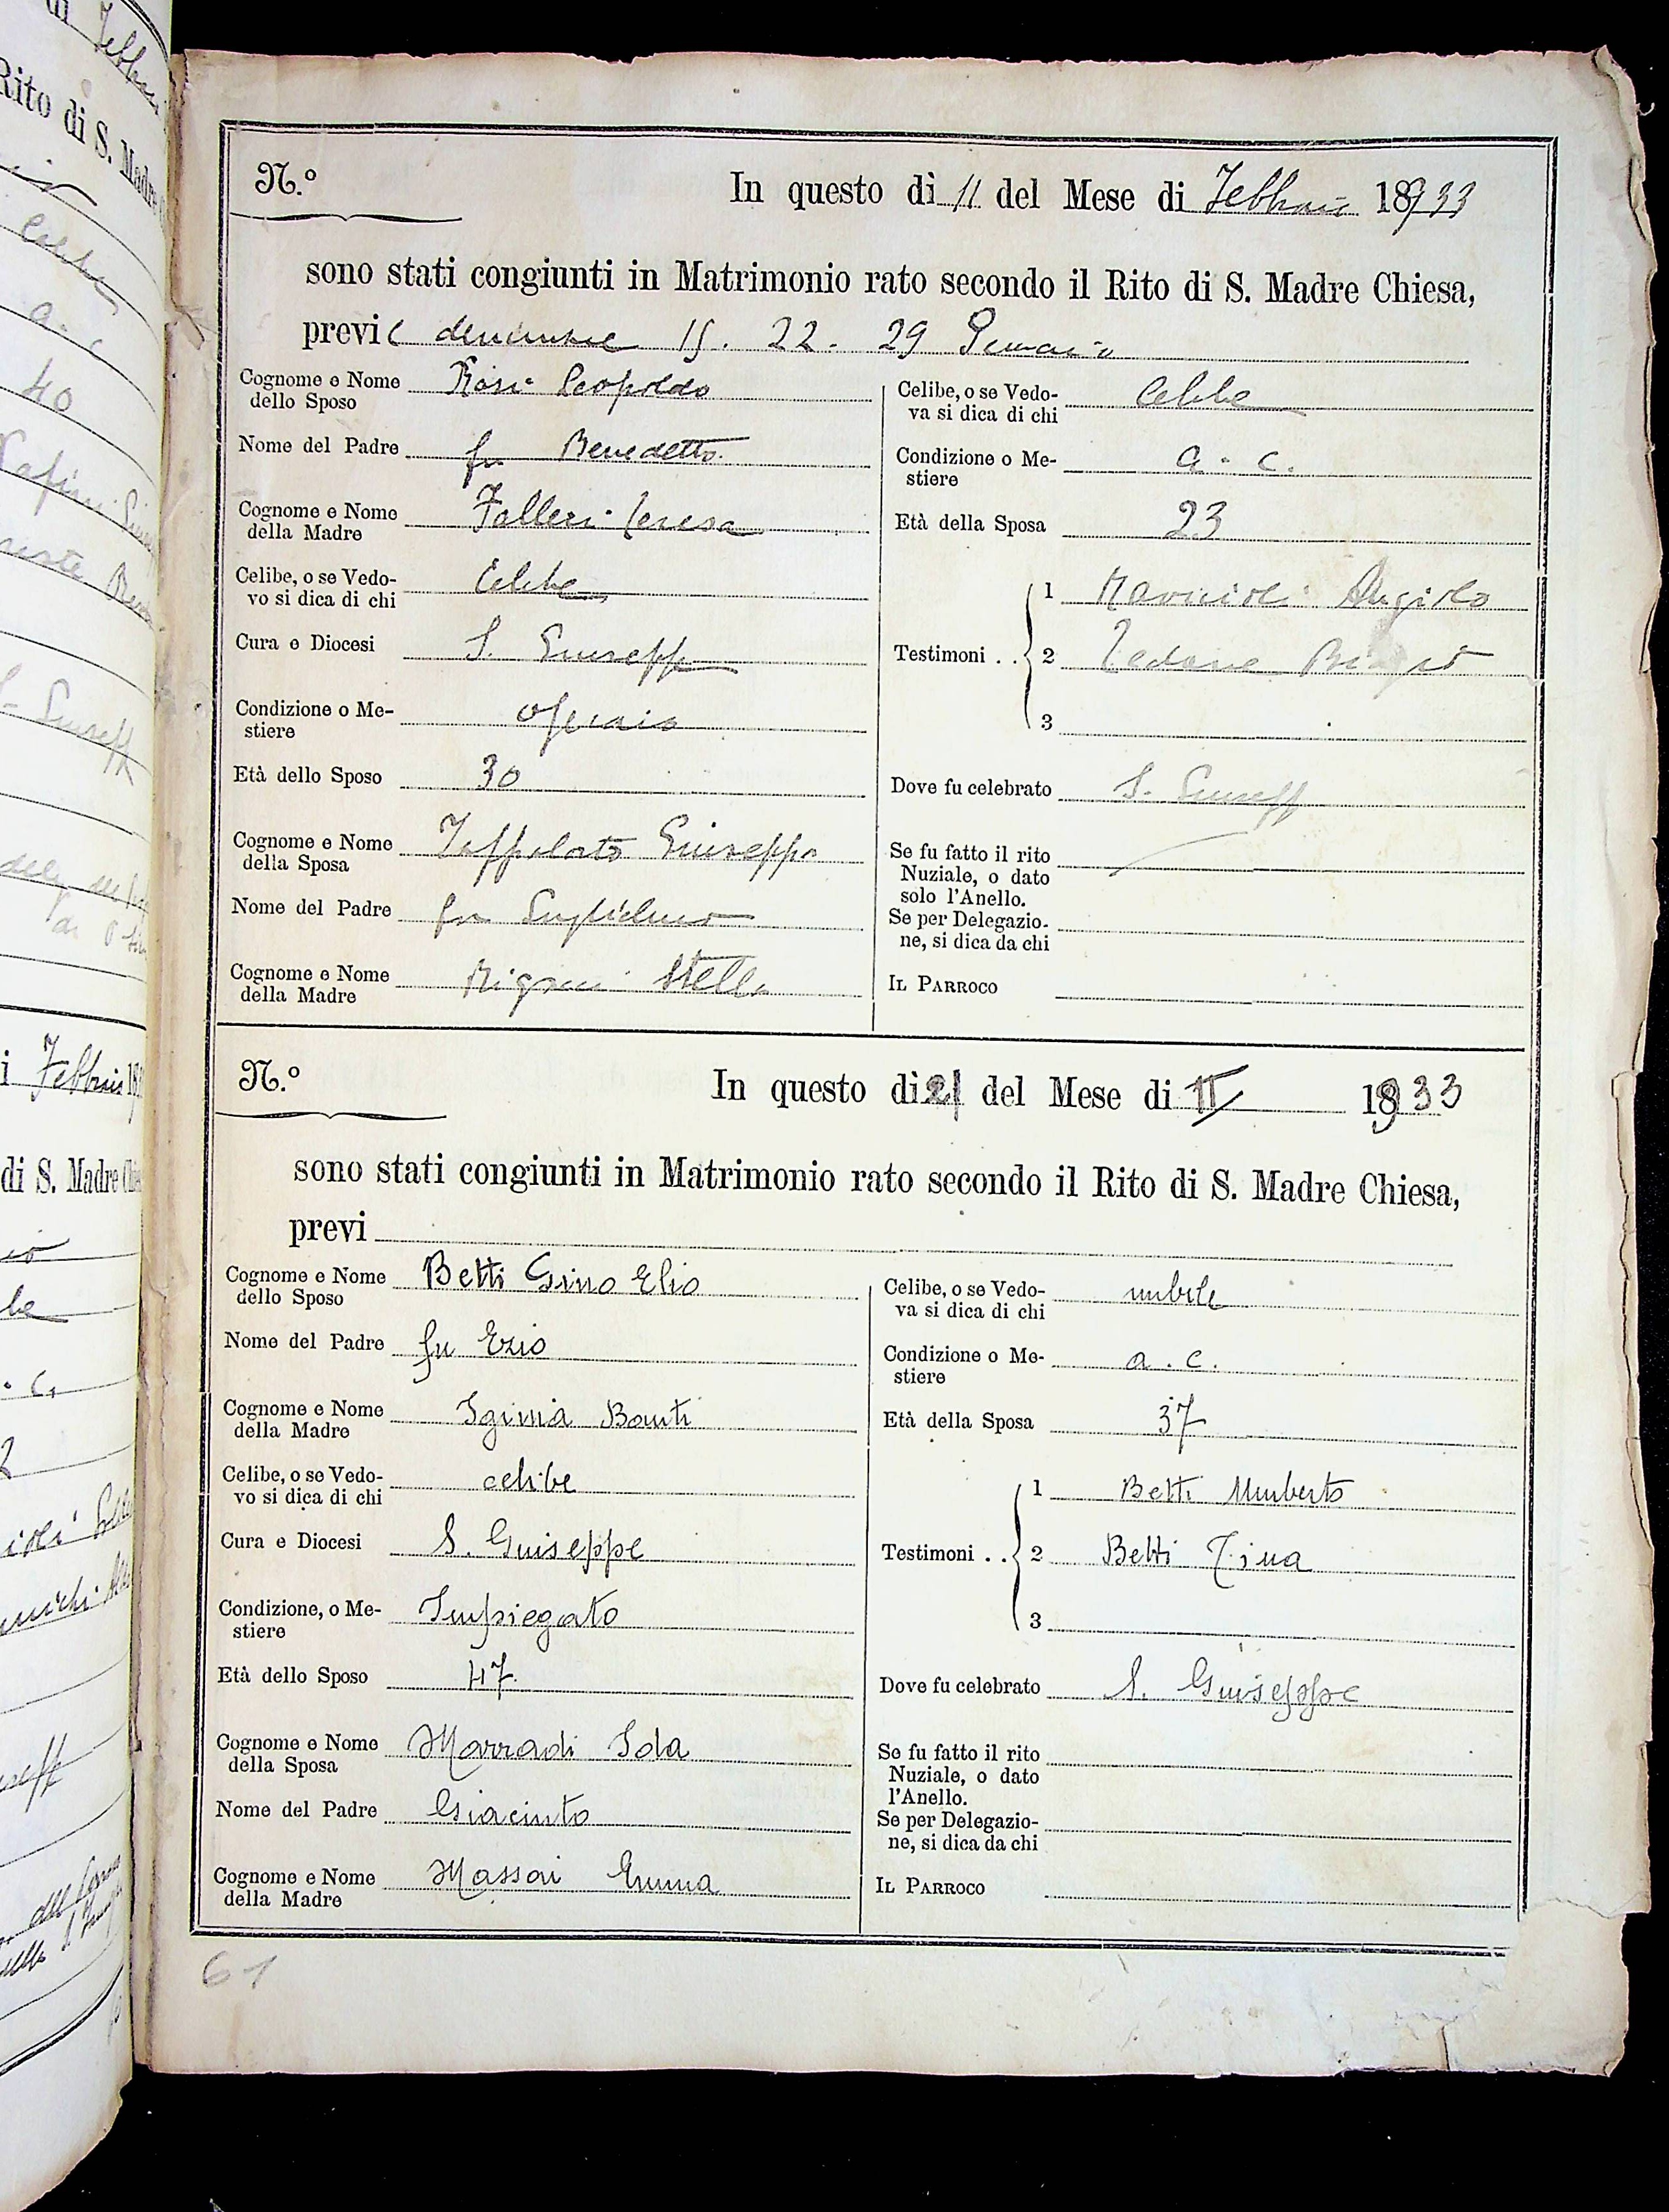 N.º
In questo dì 11 del Mese di Febbraio 18933
sono stati congiunti in Matrimonio rato secondo il Rito di S. Madre Chiesa,
previe denunzie 15. 22. 29 Gennaio
Cognome e Nome dello Sposo Rosi Leopoldo
Nome del Padre fu Benedetto
Cognome e Nome della Madre Falleri Teresa
Celibe, o se Vedo-
vo si dica di chi Celibe
Cura e Diocesi S. Giuseppe
Condizione o Me-
stiere operaio
Età dello Sposo 30
Cognome e Nome della Sposa Giuseppa
Nome del Padre fu Guglielmo
Cognome e Nome della Madre Stella
Celibe, o se Vedo-
va si dica di chi Celibe
Condizione o Me-
stiere a. c.
Età della Sposa 23
Testimoni . .
1 Angiolo
2
3
Dove fu celebrato S. Giuseppe
Se fu fatto il rito
Nuziale, o dato
solo l'Anello.
Se per Delegazio-
ne, si dica da chi
Il Parroco
N.º
In questo dì 21 del Mese di II 18933
sono stati congiunti in Matrimonio rato secondo il Rito di S. Madre Chiesa,
previ
Cognome e Nome dello Sposo Betti Gino Elio
Nome del Padre fu Ezio
Cognome e Nome della Madre Iginia Banti
Celibe, o se Vedo-
vo si dica di chi celibe
Cura e Diocesi S. Giuseppe
Condizione, o Me-
stiere Impiegato
Età dello Sposo 47.
Cognome e Nome della Sposa Marradi Ida
Nome del Padre Giacinto
Cognome e Nome della Madre Massai Emma
Celibe, o se Vedo-
va si dica di chi nubile
Condizione o Me-
stiere a. c.
Età della Sposa 37
Testimoni . .
1 Betti Umberto
2 Betti Tina
3
Dove fu celebrato S. Giuseppe
Se fu fatto il rito
Nuziale, o dato
l'Anello.
Se per Delegazio-
ne, si dica da chi
Il Parroco
61